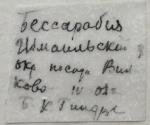 Бессарабия
Измаильский
окр. посад Вил
ково IV 08
Б К Гиндце